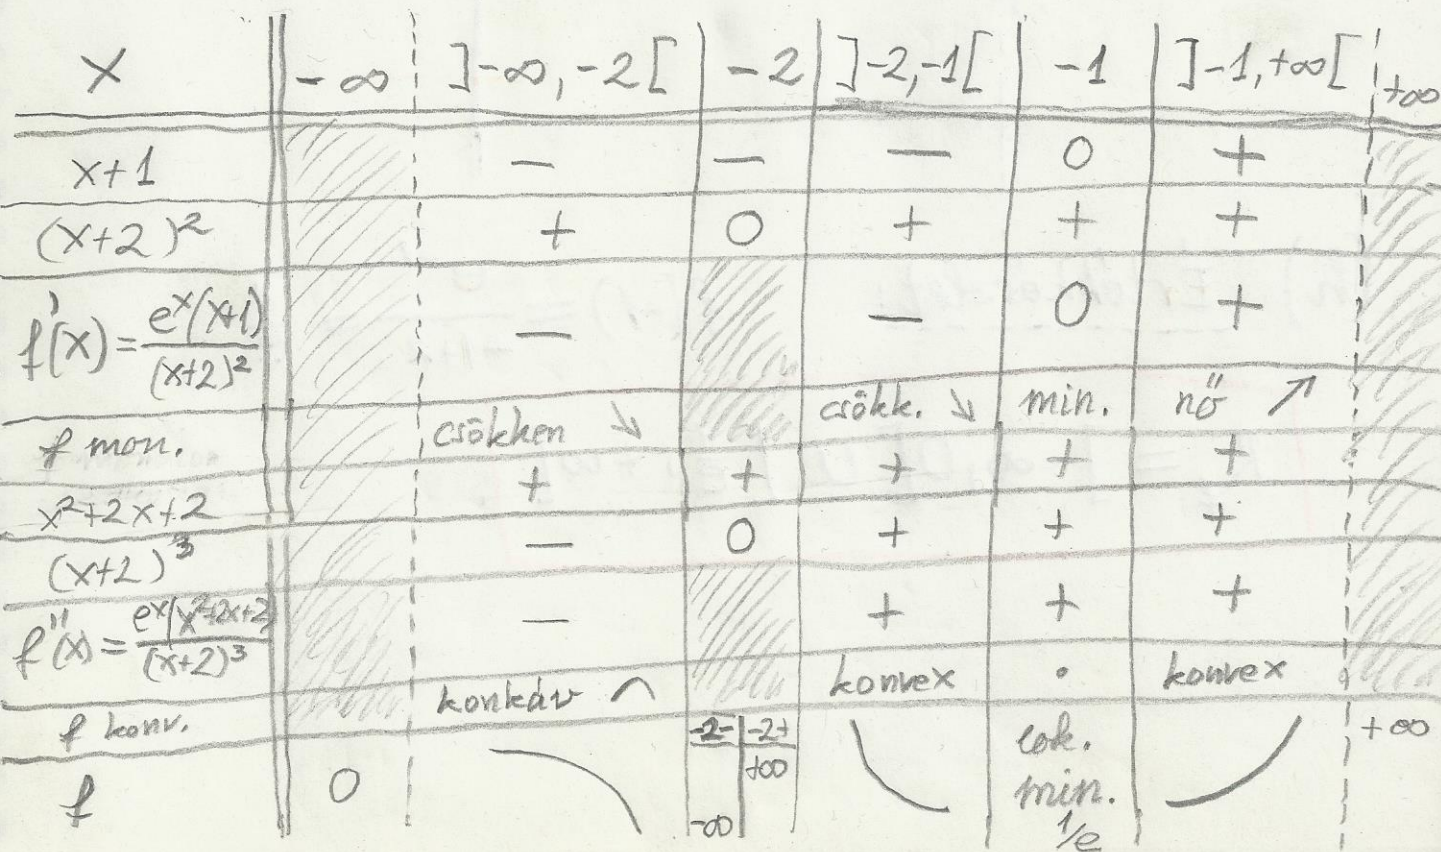 x -∞ ]-∞, -2[ -2 ]-2, -1[ -1 ]-1, +∞[ +∞
x+1 − − − 0 +
(x+2)² + 0 + + +
f'(x) = eˣ(x+1)/(x+2)² − − 0 +
f mon. csökken ↘ csökk. ↘ min. nő ↗
x²+2x+2 + + + + +
(x+2)³ − 0 + + +
f''(x) = eˣ(x²+2x+2)/(x+2)³ − + + +
f konv. konkáv ⌒ konvex • konvex
f 0 -2- -2+ lok. +∞
+∞ min.
-∞ 1/e